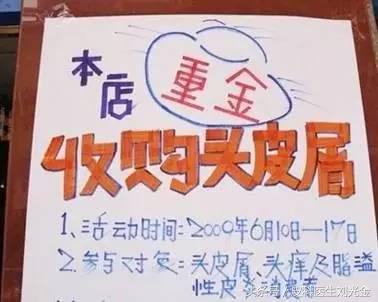 本店
重金
收购头皮屑
1、活动时间:2009年6月10日—17日
2、参与对象:头皮屑、头痒及脂溢
性皮
刘光金